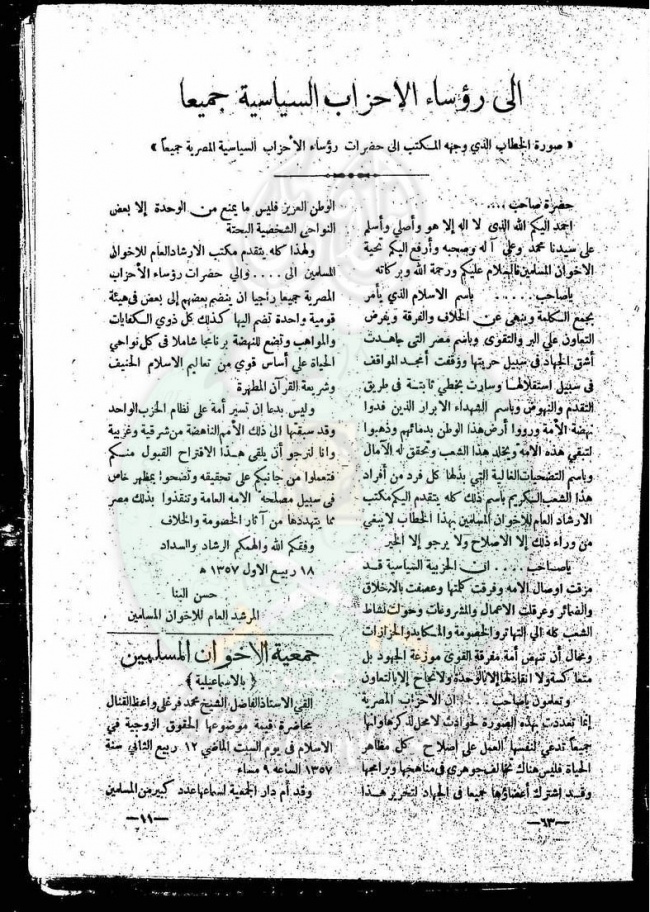 الى رؤساء الاحزاب السياسية جميعا
« صورة الخطاب الذي وجهه المكتب الى حضرات رؤساء الأحزاب السياسية المصرية جميعاً »
حضرة صاحب ....
احمد اليكم الله الذى لا اله إلا هو وأصلي وأسلم
على سيدنا محمد وعلى آله وصحبه وأرفع اليكم تحية
الاخوان المسلمين فالسلام عليكم ورحمة الله وبركاته
ياصاحب ..... باسم الاسلام الذي يأمر
بجمع الكلمة وينهى عن الخلاف والفرقة ويفرض
التعاون على البر والتقوى وباسم مصر التى جاهدت
أشق الجهاد فى سبيل حريتها ووقفت أمجد المواقف
فى سبيل استقلالها وسارت بخطى ثابتة فى طريق
التقدم والنهوض وباسم الشهداء الابرار الذين فدوا
نهضة الأمة ورووا أرض هذا الوطن بدمائهم وذهبوا
لتبقى هذه الامة ويخلد هذا الشعب وتحقق له الآمال
وباسم التضحيات الغالية التي بذلها كل فرد من أفراد
هذا الشعب الكريم باسم ذلك كله يتقدم اليكم مكتب
الارشاد العام للإخوان المسلمين بهذا الخطاب لا يبغي
من وراء ذلك إلا الاصلاح ولا يرجو إلا الخير
ياصاحب .... ان الحزبية السياسية قد
مزقت اوصال الامه وفرقت كلمتها وعصفت بالاخلاق
والضمائر وعرقلت الاعمال والمشروعات وحولت نشاط
الشعب كله الى التهاتر والخصومة والمكايد والحزازات
ومحال أن تنهض أمة مفرقة القوى موزعة الجهود بل
متعاكسة ولا انقاذ لها إلا بالوحدة ولا نجاح إلا بالتعاون
وتعلمون ياصاحب .... ان الاحزاب المصرية
إنما تعددت بهذه الصورة لحوادث لا محل لذكرها وانها
جميعاً تدعي لنفسها العمل على اصلاح كل مظاهر
الحياة فليس هناك تخالف جوهري فى مناهجها وبرامجها
وقد اشترك أعضاؤها جميعا فى الجهاد لتحرير هذا
— ٦٣ —
الوطن العزيز فليس ما يمنع من الوحدة إلا بعض
النواحى الشخصية البحتة
ولهذا كله يتقدم مكتب الارشاد العام للاخوان
المسلمين الى .... والى حضرات رؤساء الأحزاب
المصرية جميعا راجيا ان ينضم بعضهم إلى بعض فى هيئة
قومية واحدة تضم اليها كذلك كل ذوي الكفايات
والمواهب وتضع للنهضة برنامجا شاملا فى كل نواحي
الحياة علي أساس قوي من تعاليم الاسلام الحنيف
وشريعة القرآن المطهرة
وليس بدعا إن تسير أمة على نظام الحزب الواحد
وقد سبقتها الى ذلك الأمم الناهضة من شرقية وغربية
وانا لنرجو أن يلقى هذا الاقتراح القبول منكم
فتعملوا من جانبكم على تحقيقه وتضحوا بمظهر خاص
فى سبيل مصلحه الامه العامة وتنقذوا بذلك مصر
مما يتهددها من آثار الخصومة والخلاف
وفقكم الله والهمكم الرشاد والسداد
١٨ ربيع الاول ١٣٥٧ ه
حسن البنا
المرشد العام للاخوان المسلمين
جمعية الاخوان المسلمين
﴿ بالاسماعيلية ﴾
القي الاستاذ الفاضل الشيخ محمد فرغلى واعظ القنال
محاضرة قيمة موضوعها الحقوق الزوجية في
الاسلام فى يوم السبت الماضى ١٢ ربيع الثاني سنة
١٣٥٧ الساعه ٩ مساء
وقد أم دار الجمعية لسماعها عدد كبير من المسلمين
— ١١ —